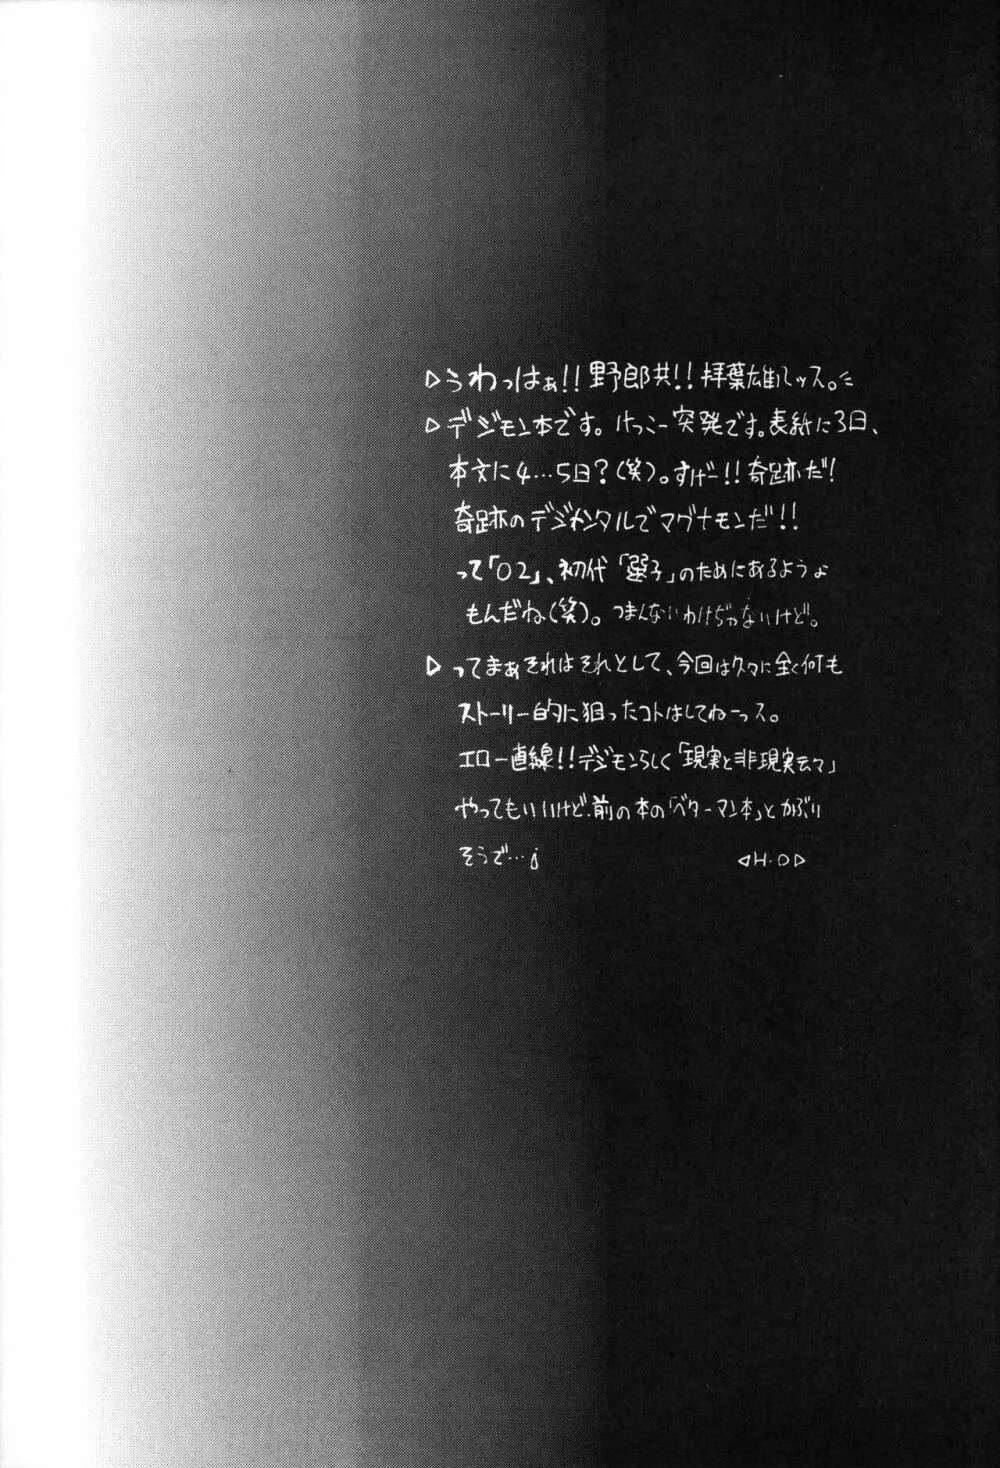 ▷うわっはぁ!!野郎共!!拝葉雄ルッス。
▷デジモン本です。けっこー突発です。表紙に3日、
本文に4…5日?(笑)。すげー!!奇跡だ!
奇跡のデジメンタルでマグナモンだ!!
って「02」、初代「選子」のためにあるようょ
もんだね(笑)。つまんないわけぢゃないけど。
▷ってまぁそれはそれとして、今回は久々に全く何も
ストーリー的に狙ったコトはしてねーっス。
エロ一直線!!デジモンらしく「現実と非現実云々」
やってもいいけど、前の本の「ベターマン本」とかぶり
そうで…
◁H・O▷